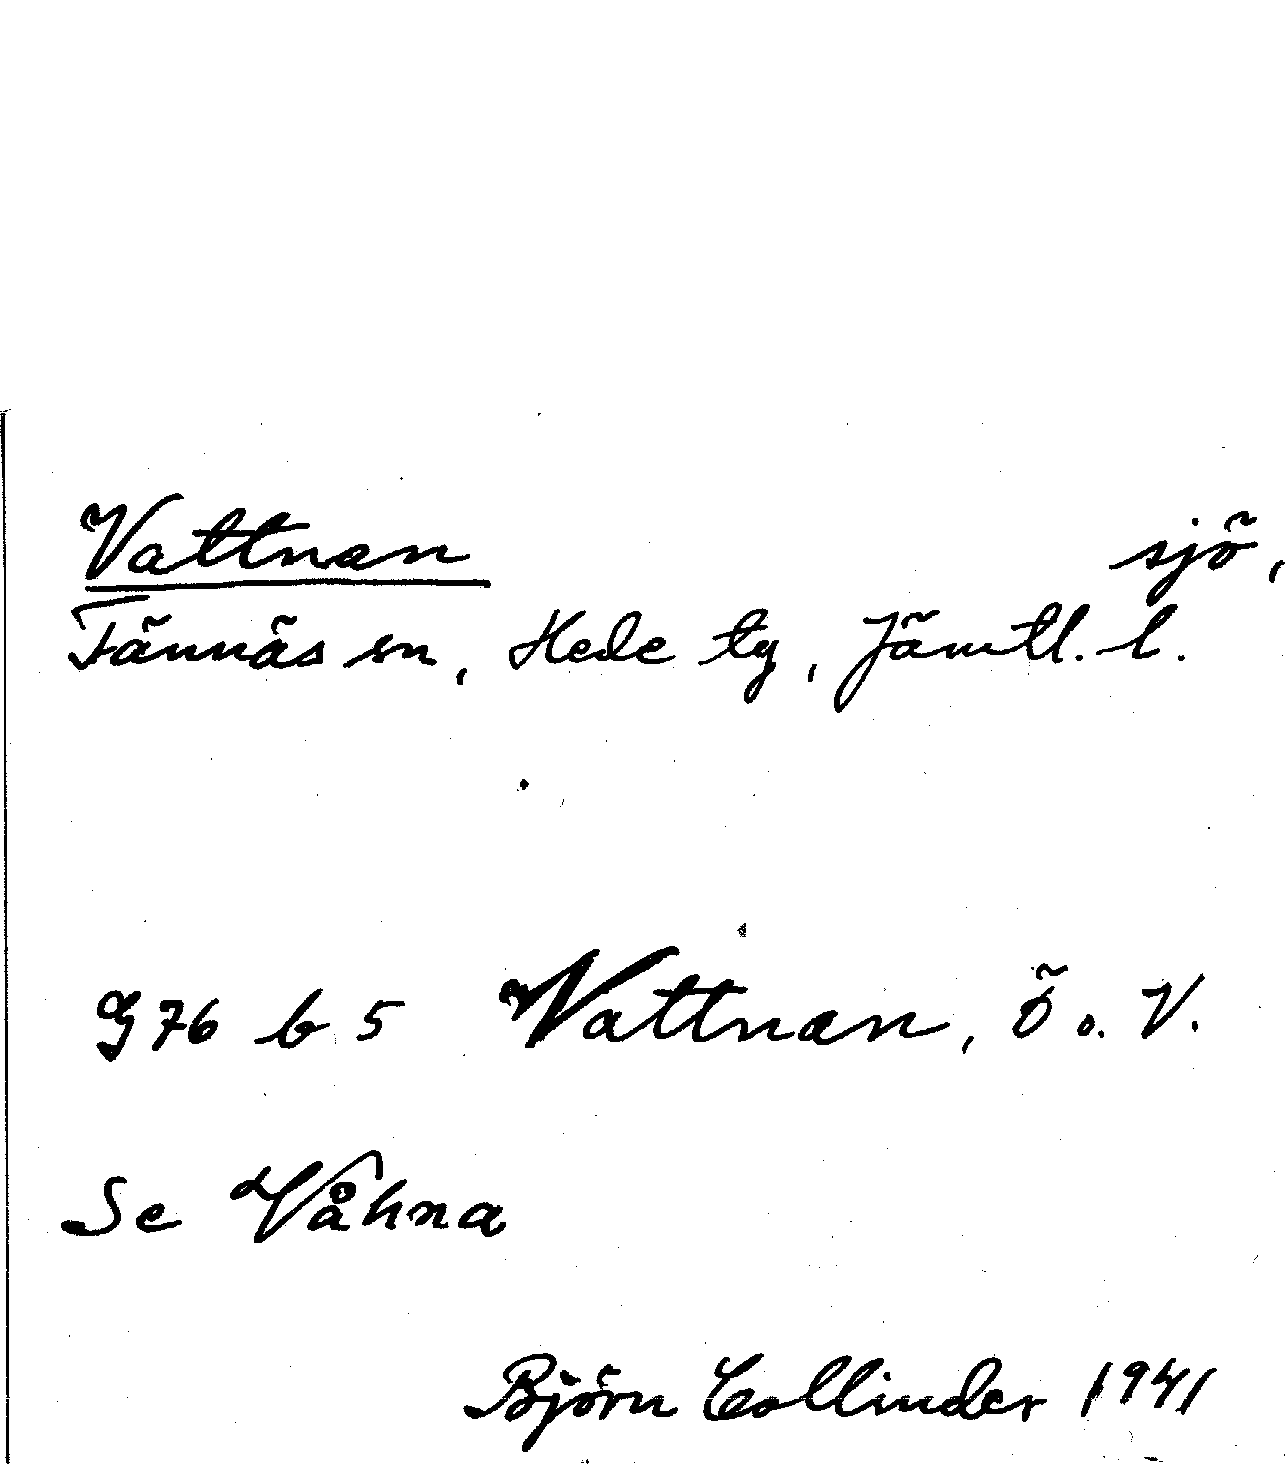 Vattnan sjö,
Tännäs sn, Hede tg, Jämtl. l.
G 76 b 5 Vattnan, Ö o. V.
Se Våhna
Björn Collinder 1941